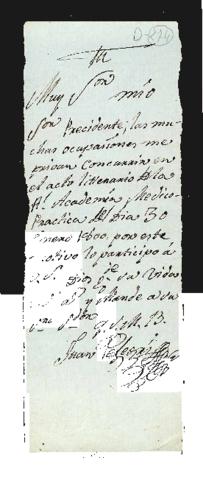 Muy Sor mio
Sor Precidente; las mu-
chas ocupasiones me
privan Concurrir en
el acto litterario de la
Rl Academia Medico-
Practica del Dia 30
Enero 1800. por este
motivo lo participo á
Dios gue su Vida
y Mande a su
q. S. M. B.
Juan